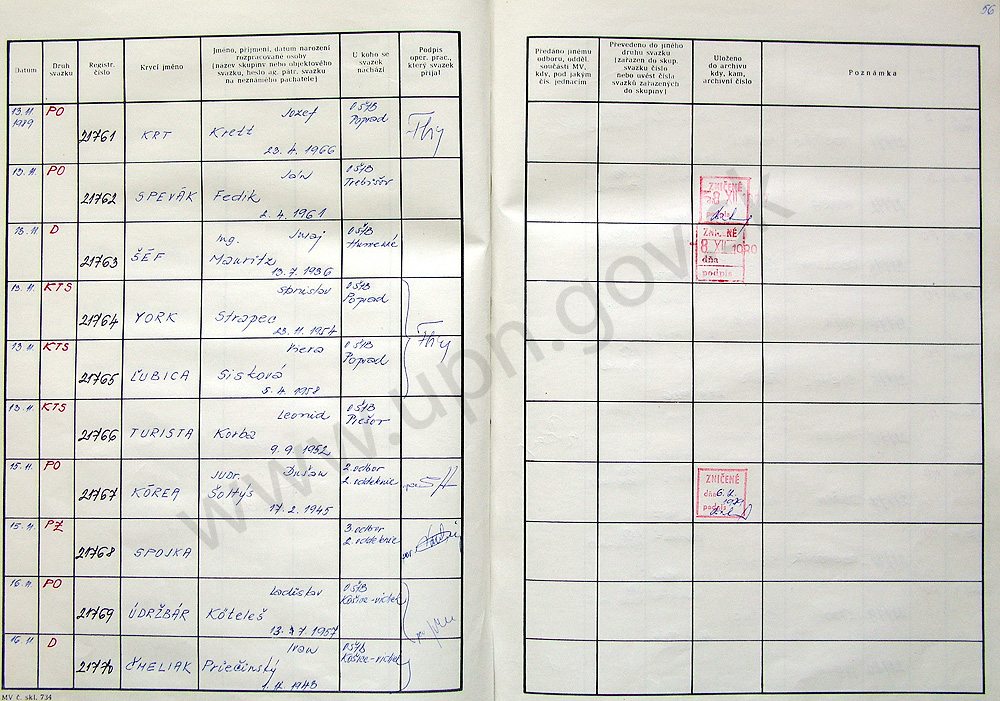 56
Datum
Druh svazku
Registr. číslo
Krycí jméno
Jméno, příjmení, datum narození rozpracované osoby (název skupiny nebo objektového svazku, heslo ag. pátr. svazku na neznámého pachatele)
U koho se svazek nachází
Podpis oper. prac., který svazek přijal
Předáno jinému odboru, odděl. součásti MV, kdy, pod jakým čís. jednacím
Převedeno do jiného druhu svazku (zařazen do skup. svazku číslo nebo uvést čísla svazků zařazených do skupiny)
Uloženo do archivu kdy, kam, archivní číslo
Poznámka
13.11. 1989 PO 21761 KRT Jozef Krett 23. 4. 1966 OŠtB Poprad Thy
13.11. PO 21762 SPEVÁK Ján Fedik 2. 4. 1961 OŠtB Trebišov
ZNIČENÉ
podpis
13.11. D 21763 ŠÉF Ing. Juraj Mauritz 13. 7. 1936 OŠtB Humenné
ZNIČENÉ
8. XII. 1989
dňa
podpis
13.11. KTS 21764 YORK Stanislav Strapec 23. 11. 1954 OŠtB Poprad
Thy
13.11. KTS 21765 ĽUBICA Viera Sisková 5. 4. 1958 OŠtB Poprad
13.11. KTS 21766 TURISTA Leonid Korba 9. 9. 1952 OŠtB Prešov
15.11. PO 21767 KÓREA JUDr. Dušan Šoltýs 17. 2. 1945 2. odbor 2. oddelenie
ZNIČENÉ
dňa
podpis
15.11. PZ 21768 SPOJKA 3. odbor 2. oddelenie
16.11. PO 21769 ÚDRŽBÁR Ladislav Köteleš 13. 7 1957 OŠtB Košice-vidiek
16.11 D 21770 ČMELIAK Ivan Priečinský 1948 OŠtB Košice-vidiek
MV č. skl. 734
www.upn.gov.sk